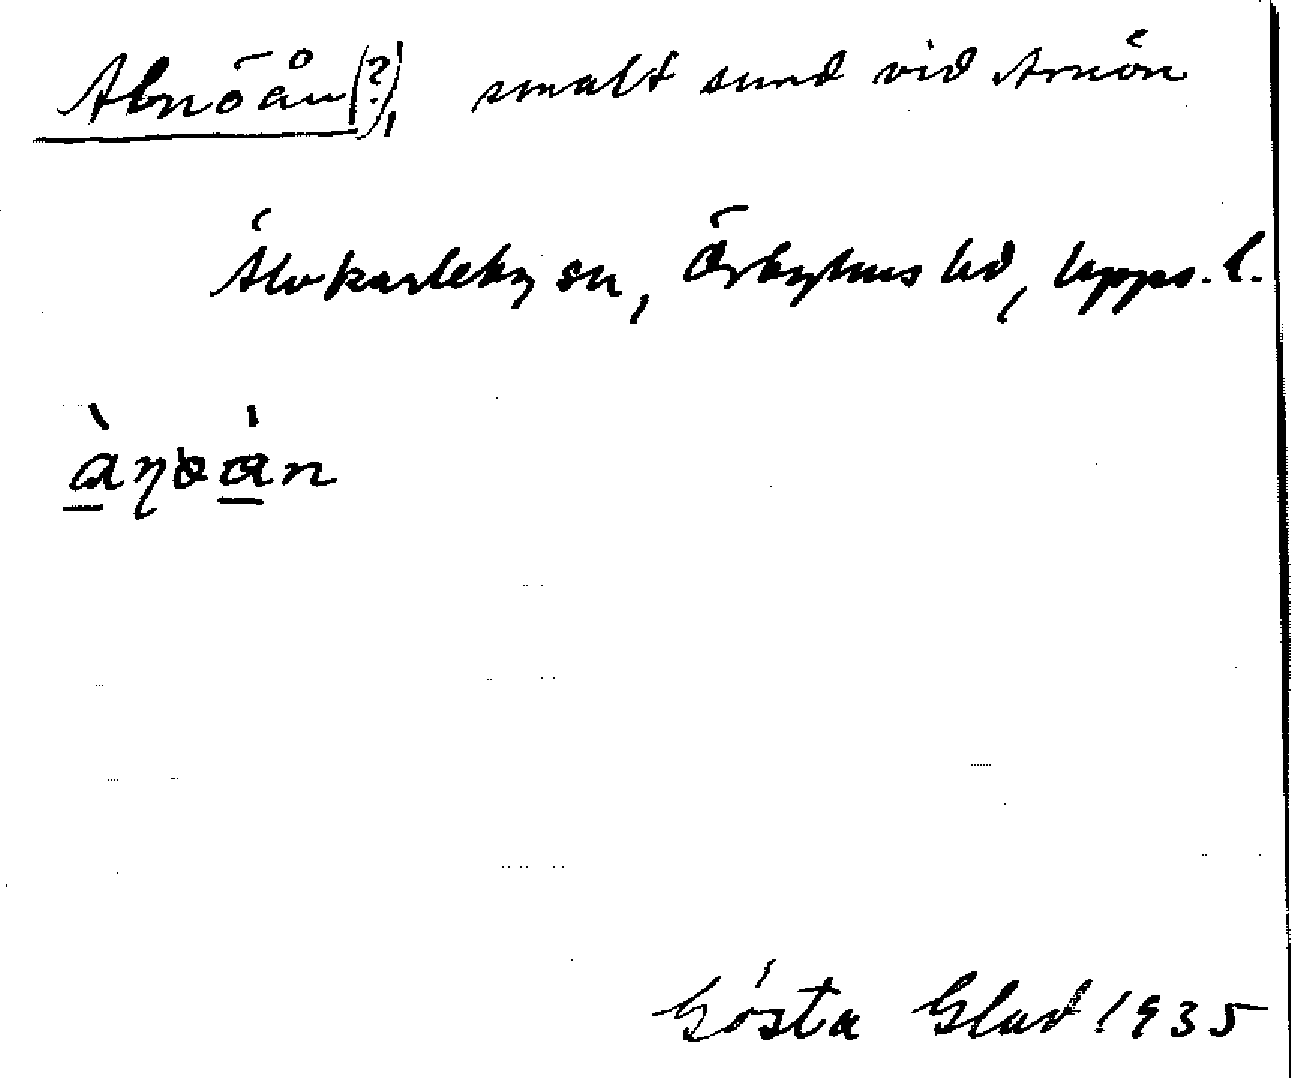 Abnöån(?), smalt sund vid Arnön
Älvkarleby sn, Örbyhus hd, Upps. l.
Gösta Glad 1935